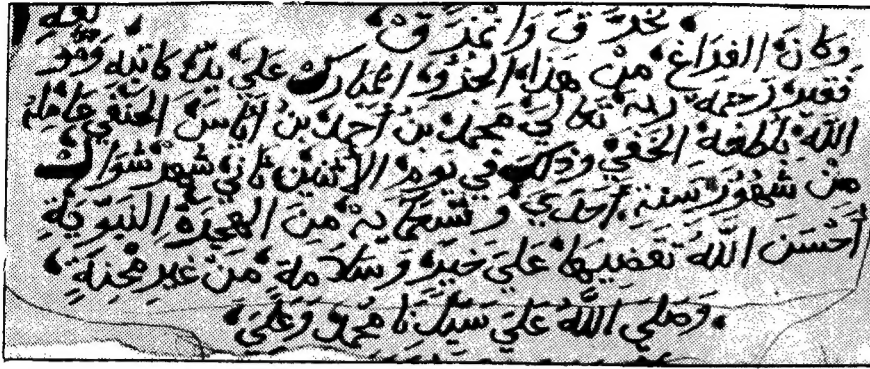 تخرق وانمزق
وكان الفراغ من هذا الجزؤ المبارك علي يد كاتبه وهو
فقير رحمة ربه تعالي محمد بن أحمد بن أناس الحنفي عامله
الله بلطفه الخفي وذلك في يوم الاثنين ثاني شهر شوال
من شهور سنة أحدي وتسعماية من الهجرة النبوية
أحسن الله تقضيها علي خير وسلامة من غير محنة
وصلي الله علي سيدنا محمد وعلي